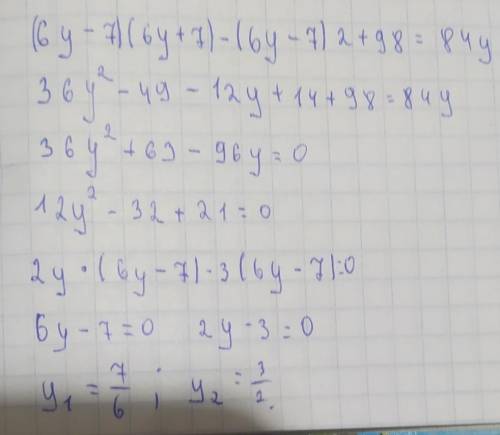 (6y-7)(6y+7)-(6y-7)2+98=84y
36y²-49-12y+14+98=84y
36y²+63-96y=0
12y²-32+21=0
2y·(6y-7)-3(6y-7)=0
6y-7=0 2y-3=0
y₁=7/6; y₂=3/2.